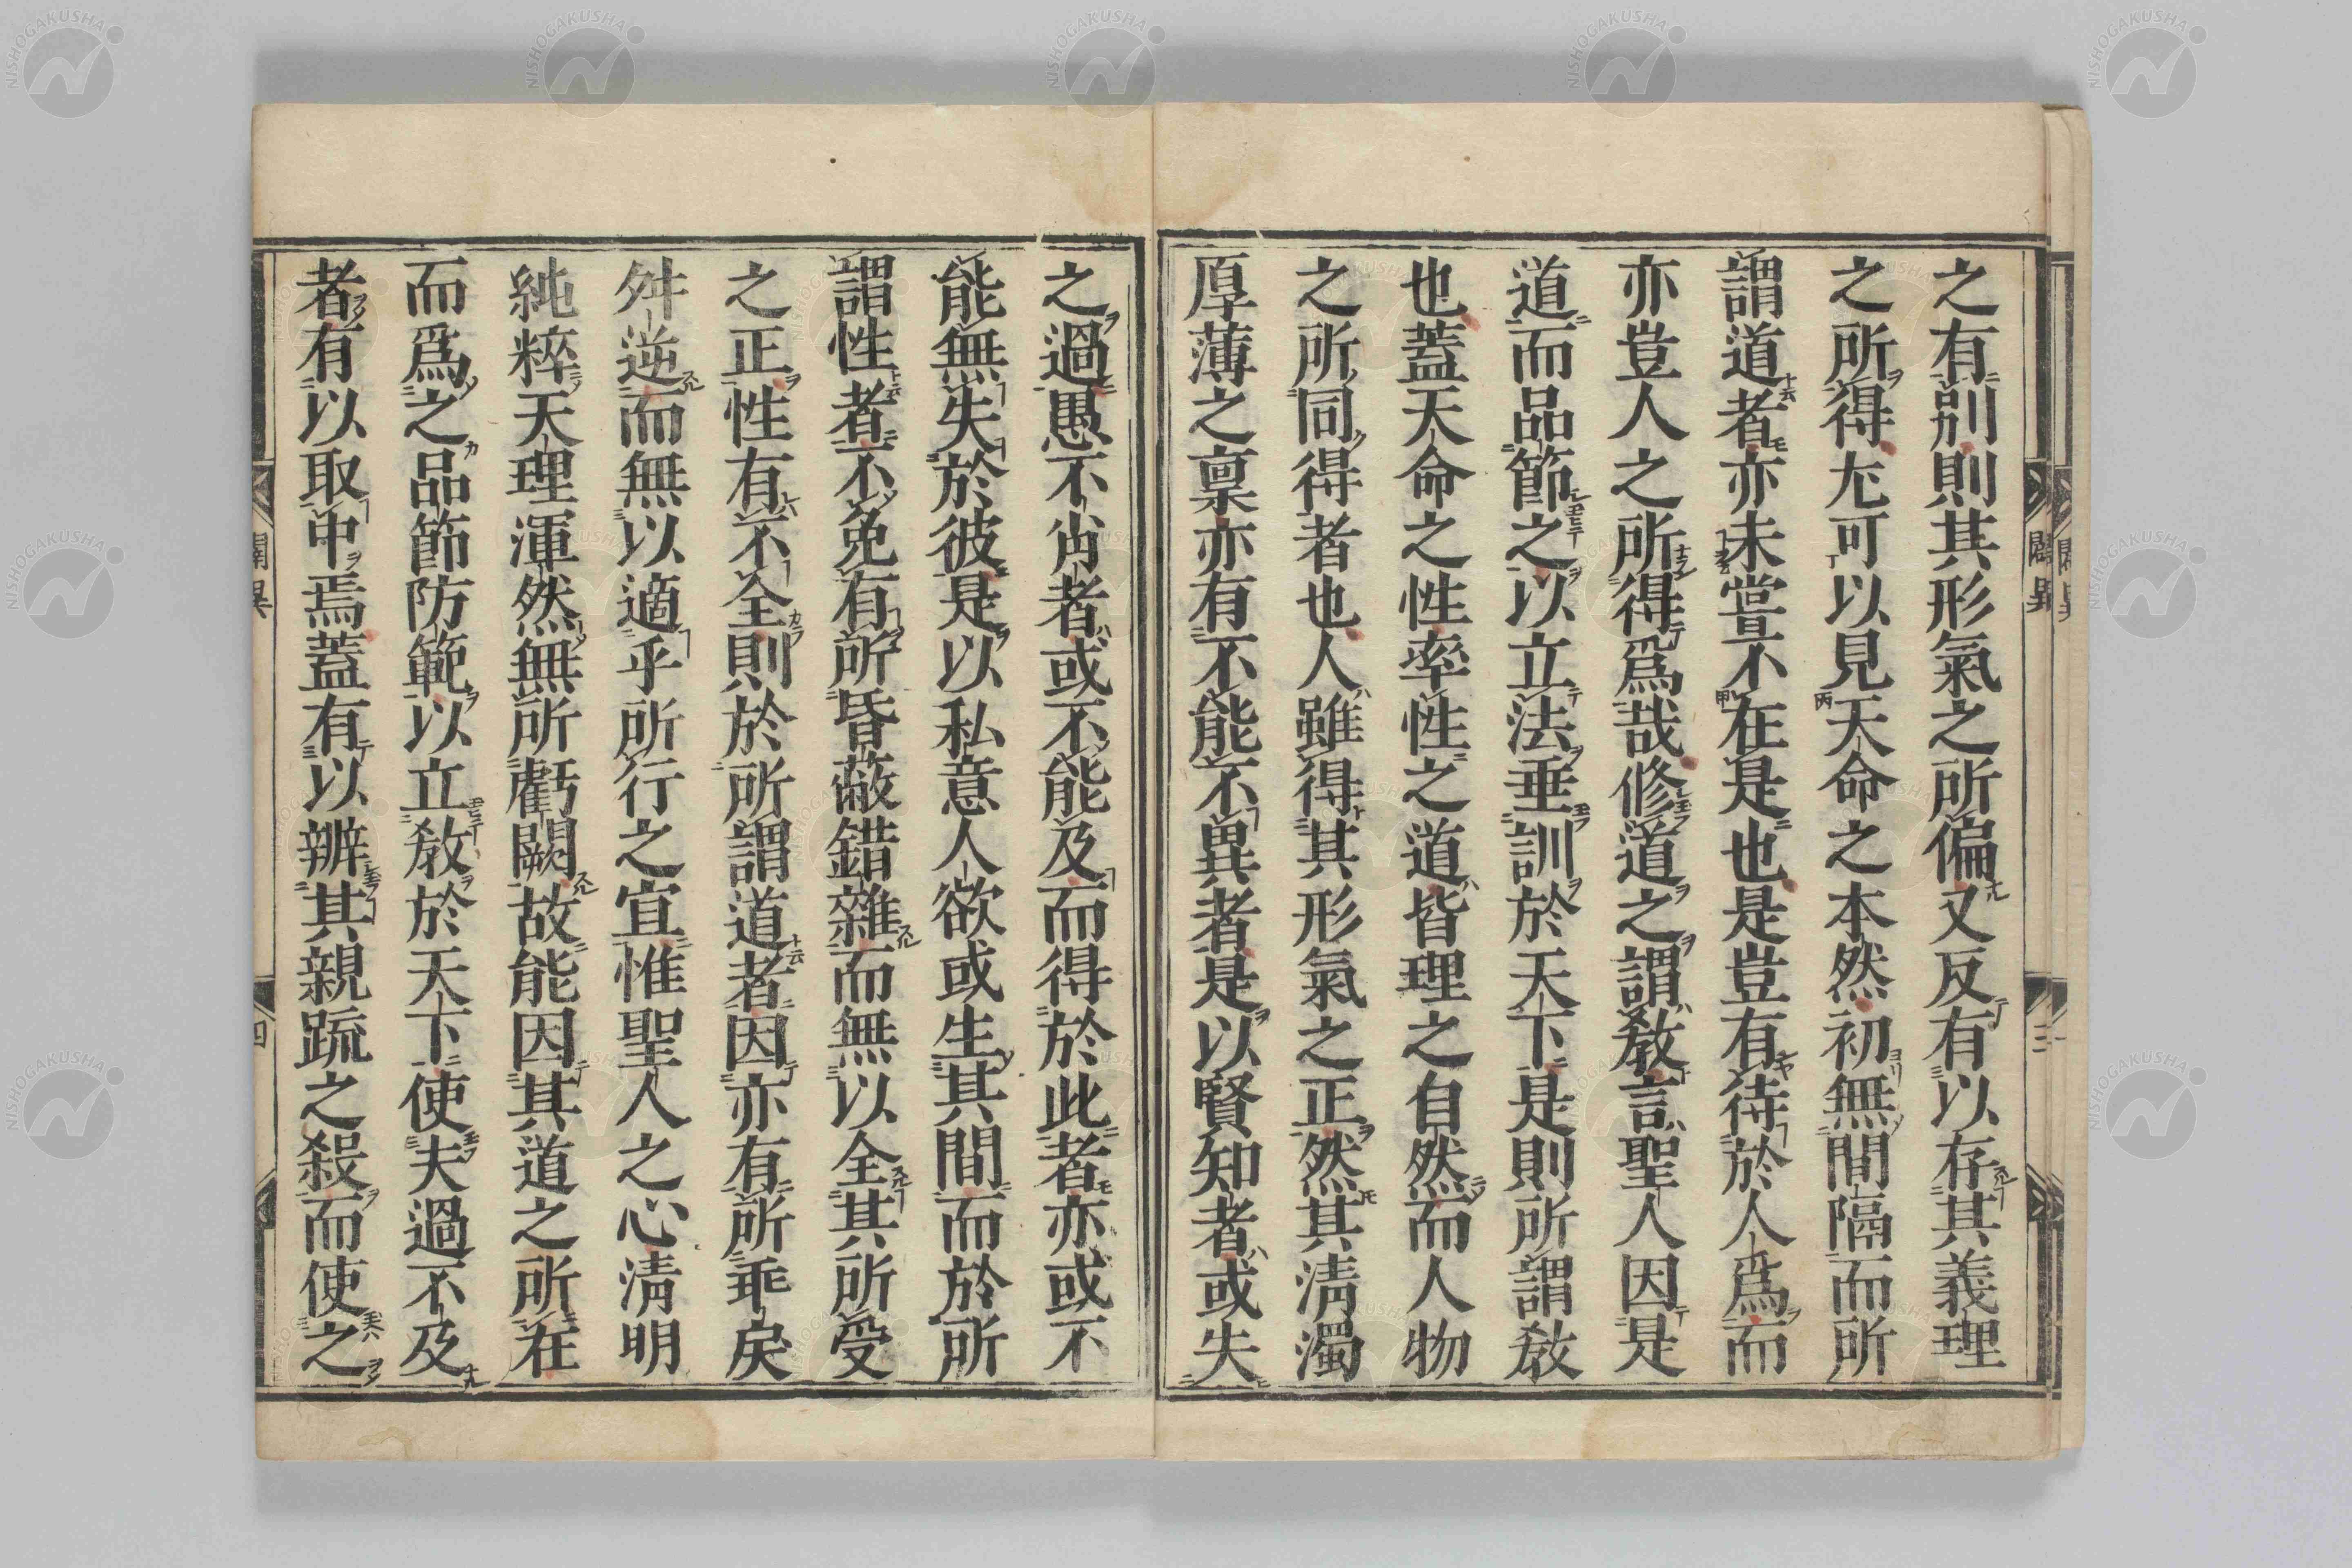 之有別則其形氣之所偏又反有以存其義理
之所得尤可以見天命之本然初無間隔而所
謂道者亦未嘗不在是也是豈有待於人爲而
亦豈人之所得爲哉修道之謂教言聖人因是
道而品節之以立法垂訓於天下是則所謂教
也蓋天命之性率性之道皆理之自然而人物
之所同得者也人雖得其形氣之正然其淸濁
厚薄之稟亦有不能不異者是以賢知者或失
之過愚不肖者或不能及而得於此者亦或不
能無失於彼是以私意人欲或生其間而於所
謂性者不免有所昏蔽錯雜而無以全其所受
之正性有不全則於所謂道者因亦有所乖戾
舛逆而無以適乎所行之宜惟聖人之心淸明
純粹天理渾然無所虧闕故能因其道之所在
而爲之品節防範以立教於天下使夫過不及
者有以取中焉蓋有以辨其親疏之殺而使之
闢異
三
四
NISHOGAKUSHA